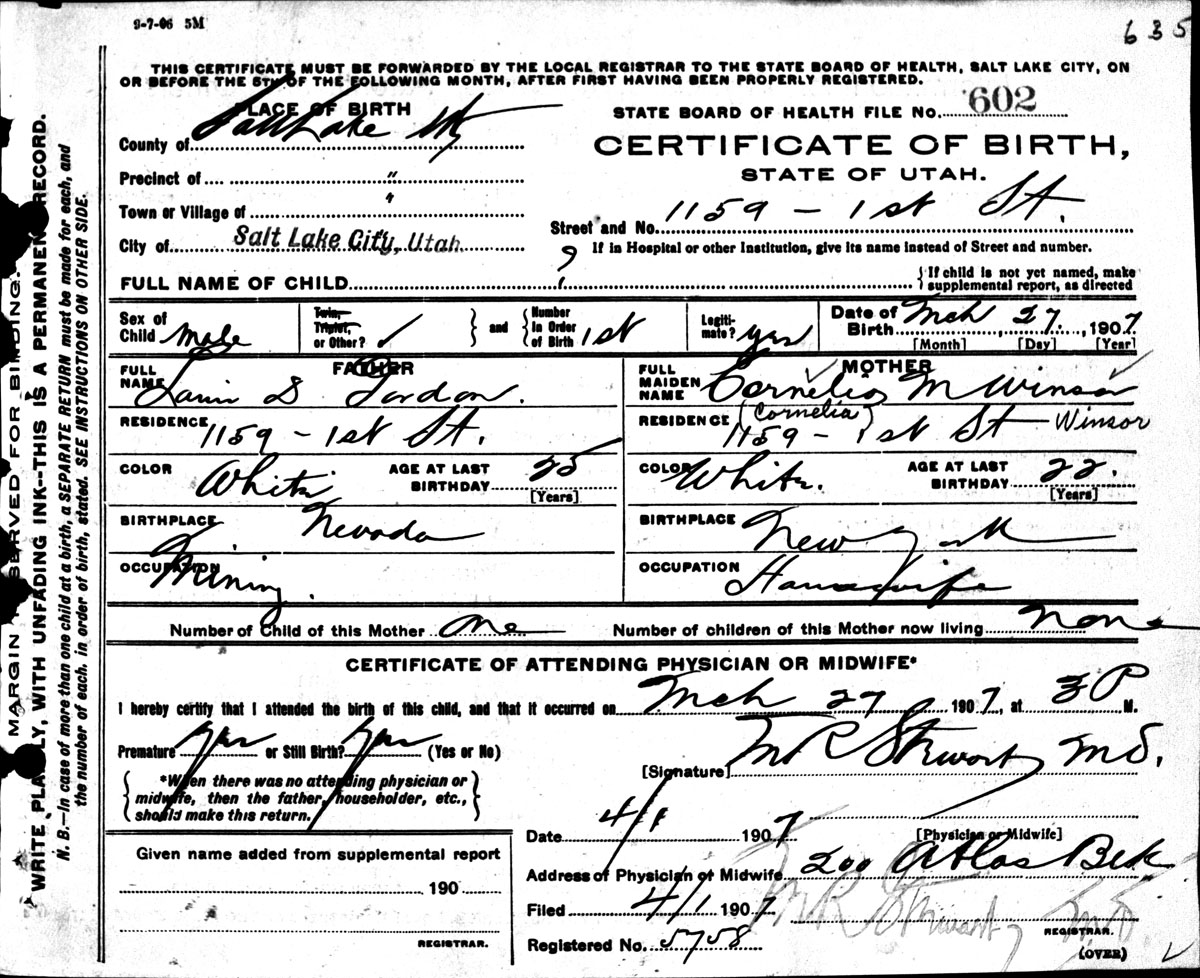 9-7-06 5M
635
THIS CERTIFICATE MUST BE FORWARDED BY THE LOCAL REGISTRAR TO THE STATE BOARD OF HEALTH, SALT LAKE CITY, ON
OR BEFORE THE 5TH OF THE FOLLOWING MONTH, AFTER FIRST HAVING BEEN PROPERLY REGISTERED.
PLACE OF BIRTH
County of Salt Lake
Precinct of "
Town or Village of "
City of Salt Lake City, Utah
STATE BOARD OF HEALTH FILE No. 602
CERTIFICATE OF BIRTH,
STATE OF UTAH.
Street and No. 1159 - 1st St.
If in Hospital or other Institution, give its name instead of Street and number.
FULL NAME OF CHILD ?
{If child is not yet named, make
supplemental report, as directed
Sex of Child Male
Twin, Triplet, or Other? ✓ } and { Number in Order of Birth 1st
Legitimate? yes
Date of Birth Mch, 27, 1907
[Month] [Day] [Year]
FATHER
FULL NAME S
RESIDENCE 1159 - 1st St.
COLOR White
AGE AT LAST BIRTHDAY 25
[Years]
BIRTHPLACE Nevada
OCCUPATION Mining.
MOTHER
FULL MAIDEN NAME Cornelia M Winsor
(Cornelia) Winsor
RESIDENCE 1159 - 1st St
COLOR White.
AGE AT LAST BIRTHDAY 22.
[Years]
BIRTHPLACE New York
OCCUPATION Housewife
Number of Child of this Mother One
Number of children of this Mother now living None
CERTIFICATE OF ATTENDING PHYSICIAN OR MIDWIFE*
I hereby certify that I attended the birth of this child, and that it occurred on Mch 27 1907, at 3 P M.
Premature yes or Still Birth? yes (Yes or No)
{*When there was no attending physician or
midwife, then the father, householder, etc.,
should make this return.}
[Signature] M R Stewart MD.
Date 4/1 1907
[Physician or Midwife]
Address of Physician or Midwife 200 Atlas Blk
Given name added from supplemental report
190
REGISTRAR.
Filed 4/1 1907
M R Stewart MD
REGISTRAR.
Registered No. 5758
(OVER)
MARGIN RESERVED FOR BINDING.
WRITE PLAINLY, WITH UNFADING INK--THIS IS A PERMANENT RECORD.
N. B.—In case of more than one child at a birth, a SEPARATE RETURN must be made for each, and
the number of each, in order of birth, stated. SEE INSTRUCTIONS ON OTHER SIDE.